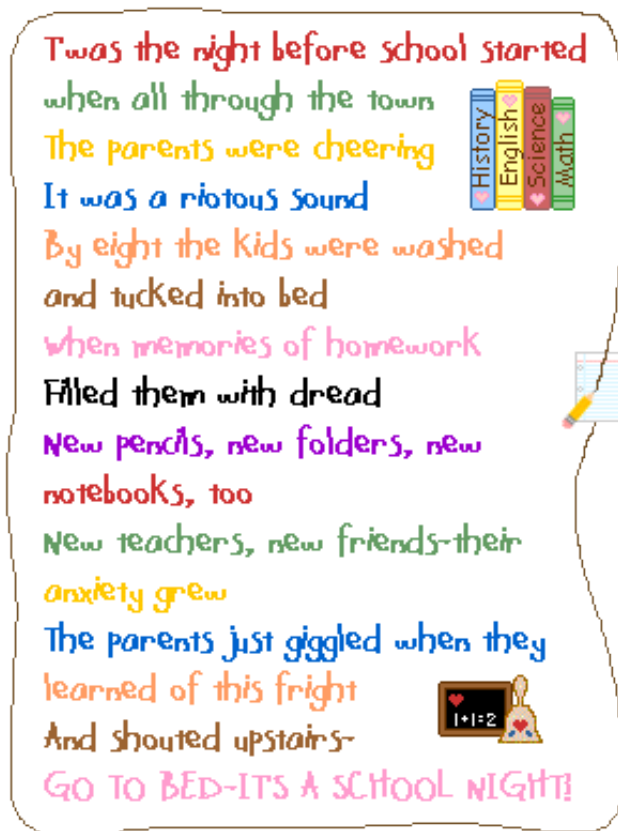 Twas the night before school started
when all through the town
The parents were cheering
It was a riotous sound
By eight the kids were washed
and tucked into bed
when memories of homework
Filled them with dread
New pencils, new folders, new
notebooks, too
New teachers, new friends-their
anxiety grew
The parents just giggled when they
learned of this fright
And shouted upstairs-
GO TO BED-IT'S A SCHOOL NIGHT!
History
English
Science
Math
1+1=2